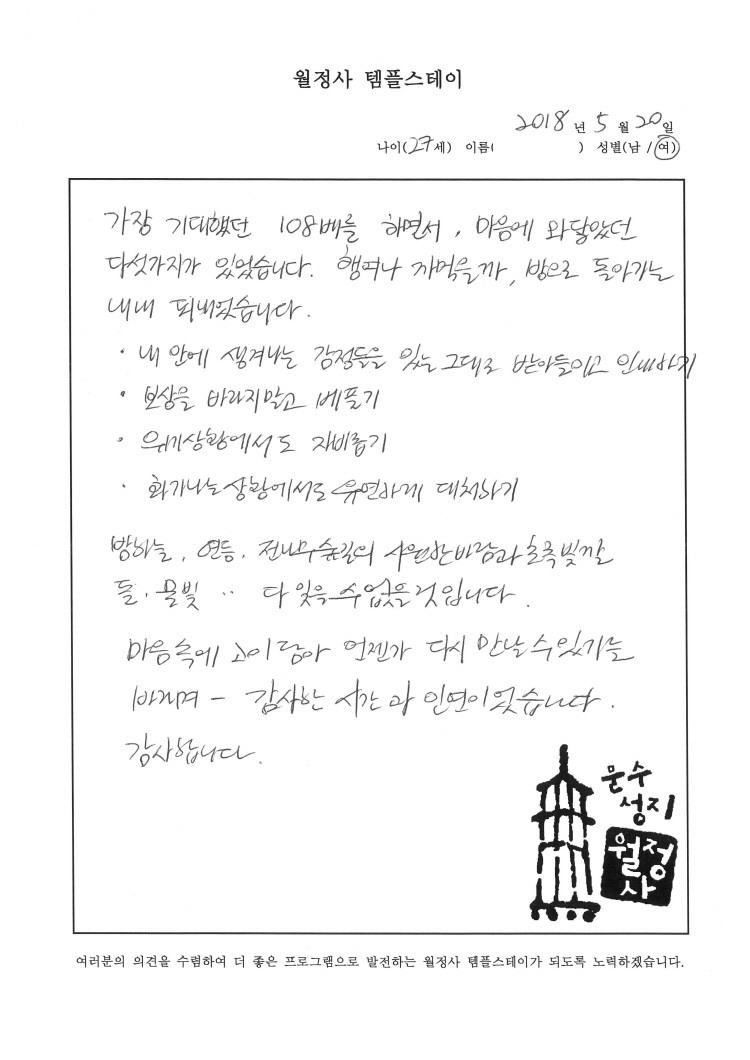 월정사 템플스테이
2018 년 5 월 20 일
나이(27세) 이름( ) 성별(남 / 여)
가장 기대했던 108배를 하면서, 마음에 와닿았던
다섯가지가 있었습니다. 행여나 까먹을까, 방으로 돌아가는
내내 되뇌었습니다.
· 내 안에 생겨나는 감정들을 있는 그대로 받아들이고 인내하기
· 보상을 바라지말고 베풀기
· 위기상황에서도 자비롭기
· 화가나는상황에서도 유연하게 대처하기
밤하늘, 연등, 전나무숲길의 시원한바람과 초록빛깔
돌·물빛 ·· 다 잊을 수 없을 것입니다.
마음속에 고이 담아 언젠가 다시 만날 수 있기를
바라며 - 감사한 시간과 인연이었습니다.
감사합니다.
문수
성지
월정
사
여러분의 의견을 수렴하여 더 좋은 프로그램으로 발전하는 월정사 템플스테이가 되도록 노력하겠습니다.